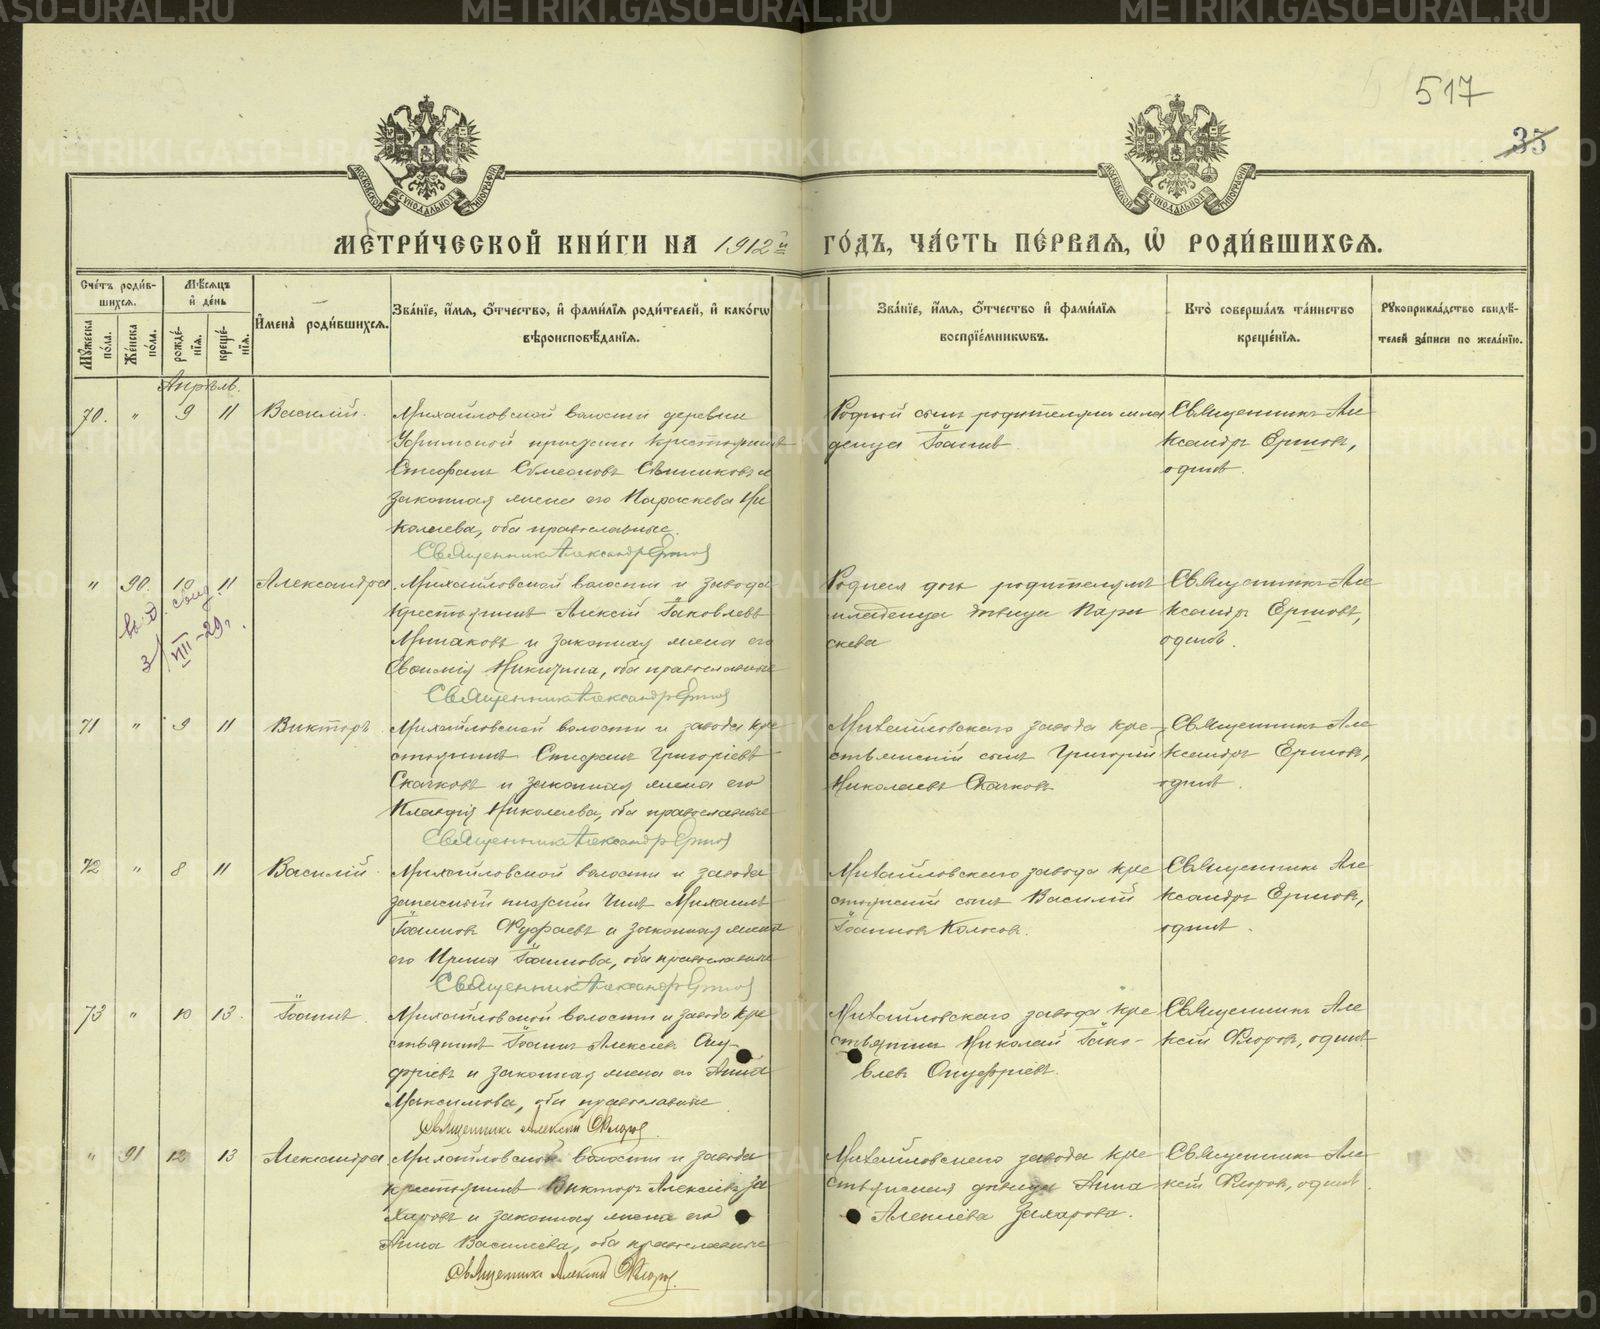 517
35
МОСКОВСКОЙ СѴНОДАЛЬНОЙ ТИПОГРАФІИ
МОСКОВСКОЙ СѴНОДАЛЬНОЙ ТИПОГРАФІИ
МЕТРИ́ЧЕСКОЙ КНИ́ГИ НА 1912й ГО́ДЪ, ЧА́СТЬ ПЕ́РВАЯ, Ѡ҆ РОДИ́ВШИХСЯ.
Сче́тъ роди́в-
шихся.
Мꙋ́жеска по́ла.
Же́нска по́ла.
Мѣ́сяцъ
и҆ де́нь
рожде́-
нїя.
креще́-
нїя.
И҆мена̀ роди́вшихся.
Зва́нїе, и҆́мя, ѻ҆́тчество, и҆ фами́лїя роди́телей, и҆ како́гѡ
вѣроисповѣ́данїя.
Зва́нїе, и҆́мя, ѻ҆́тчество и҆ фами́лїя
воспрїе́мникѡвъ.
Кто̀ соверша́лъ та́инство
креще́нїя.
Рꙋкоприкла́дство свидѣ́-
телей за́писи по жела́нїю.
Апрѣль.
70. " 9 11 Василій.
Михайловской волости деревни
Уфимской приписи крестьянинъ
Стефанъ Сѵмеоновъ и
законная жена его Параскева Ни
колаева, оба православные.
Священникъ Александръ Ершовъ
Родной сынъ родителямъ мла
денца Іоаннъ.
Священникъ Але
ксандръ Ершовъ,
одинъ.
" 90. 10 11 Александра
выд. свид.
3/VIII-29г.
Михайловской волости и завода
крестьянинъ Алексій Іаковлевъ
и законная жена его
Никитина, оба православные
Священникъ Александръ Ершовъ
Родная дочь родителямъ
младенца дѣвица Пара
скева
Священникъ Але
ксандръ Ершовъ,
одинъ.
71 " 9 11 Викторъ
Михайловской волости и завода кре
стьянинъ Стефанъ Григоріевъ
Скачковъ и законная жена его
Клавдія Николаева, оба православные
Священникъ Александръ Ершовъ
Михайловскаго завода кре-
стьянскій сынъ Григорій
Николаевъ Скачковъ
Священникъ Але
ксандръ Ершовъ,
одинъ.
72 " 8 11 Василій.
Михайловской волости и завода
запасный чинъ Михаилъ
Іоанновъ и законная жена
его Ирина Іоаннова, оба православные
Священникъ Александръ Ершовъ
Михайловскаго завода кре
стьянскій сынъ Василій
Іоанновъ Колосовъ.
Священникъ Але
ксандръ Ершовъ,
одинъ.
73 " 10 13. Іоаннъ.
Михайловской волости и завода кре
стьянинъ Іоаннъ Алексіевъ Ону-
фріевъ и законная жена его Анна
Максимова, оба православные
Священникъ Алексій Флоровъ.
Михайловскаго завода кре
стьянинъ Николай Іако-
влевъ Онуфріевъ.
Священникъ Але
ксій Флоровъ, одинъ
" 91 12 13 Александра
Михайловской волости и завода
крестьянинъ Викторъ Алексіевъ За
харовъ и законная жена его
Анна Василіева, оба православные
Священникъ Алексій Флоровъ.
Михайловскаго завода кре
стьянская дѣвица Анна
Алексіева Захарова.
Священникъ Але
ксій Флоровъ, одинъ.
METRIKI.GASO-URAL.RU